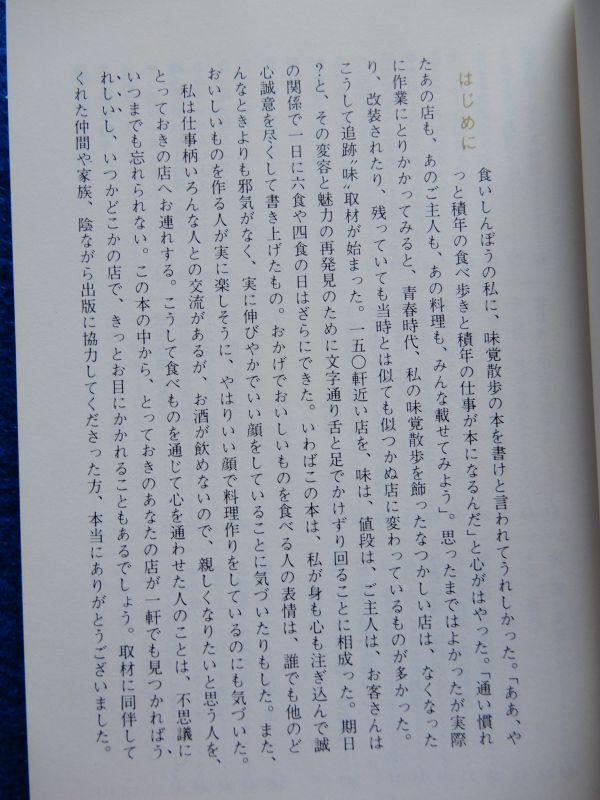 はじめに
食いしんぼうの私に、味覚散歩の本を書けと言われてうれしかった。「ああ、や
っと積年の食べ歩きと積年の仕事が本になるんだ」と心がはやった。「通い慣れ
たあの店も、あのご主人も、あの料理も、みんな載せてみよう」。思ったまではよかったが実際
に作業にとりかかってみると、青春時代、私の味覚散歩を飾ったなつかしい店は、なくなった
り、改装されたり、残っていても当時とは似ても似つかぬ店に変わっているものが多かった。
こうして追跡〝味〟取材が始まった。一五〇軒近い店を、味は、値段は、ご主人は、お客さんは
?と、その変容と魅力の再発見のために文字通り舌と足でかけずり回ることに相成った。期日
の関係で一日に六食や四食の日はざらにできた。いわばこの本は、私が身も心も注ぎ込んで誠
心誠意を尽くして書き上げたもの。おかげでおいしいものを食べる人の表情は、誰でも他のど
んなときよりも邪気がなく、実に伸びやかでいい顔をしていることに気づいたりもした。また、
おいしいものを作る人が実に楽しそうに、やはりいい顔で料理作りをしているのにも気づいた。
私は仕事柄いろんな人との交流があるが、お酒が飲めないので、親しくなりたいと思う人を、
とっておきの店へお連れする。こうして食べものを通じて心を通わせた人のことは、不思議に
いつまでも忘れられない。この本の中から、とっておきのあなたの店が一軒でも見つかればう
れしいし、いつかどこかの店で、きっとお目にかかれることもあるでしょう。取材に同伴して
くれた仲間や家族、陰ながら出版に協力してくださった方、本当にありがとうございました。